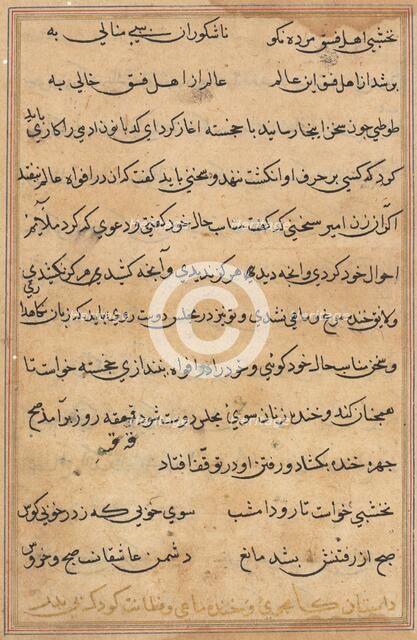 نخشبی اهل فسق مرده نکو ناشکوران بسی منالی به
بر شد از اهل فسق این عالم عالم از اهل فسق خالی به
طوطی چون سخن اینجا رسانید با خجسته آغاز کرد ای کدبانو ادمی را کاری باید
کرد که کسی بر حرف او انگشت ننهد و سخنی باید گفت که آن در افواه عالم نیفتد
اگر آن زن امیر سخنی که گفت مناسب حال خود گفتی و دعوی که کرد ملایم
احوال خود کردی و آنچه دیدی هرگز ندیدی و آنچه کشیدی هرگز نکشیدی
ولایق خنده مرغ و ماهی نشدی و تو نیز در مجلس دوست روی باید که زبان نگاهداری
و سخن مناسب حال خود گوئی و خود را در افواه نیندازی خجسته خواست تا
همچنان کند و خنده زنان سوی مجلس دوست شود قهقهه روز برآمد صبح
چهره خنده بکشاد و رفتن او در توقف افتاد
نخشبی خواست تا رود امشب سوی خوبی که زد در خوبی کوس
صبح از رفتنش بشد مانع دشمن عاشقانست صبح و خروس
داستان